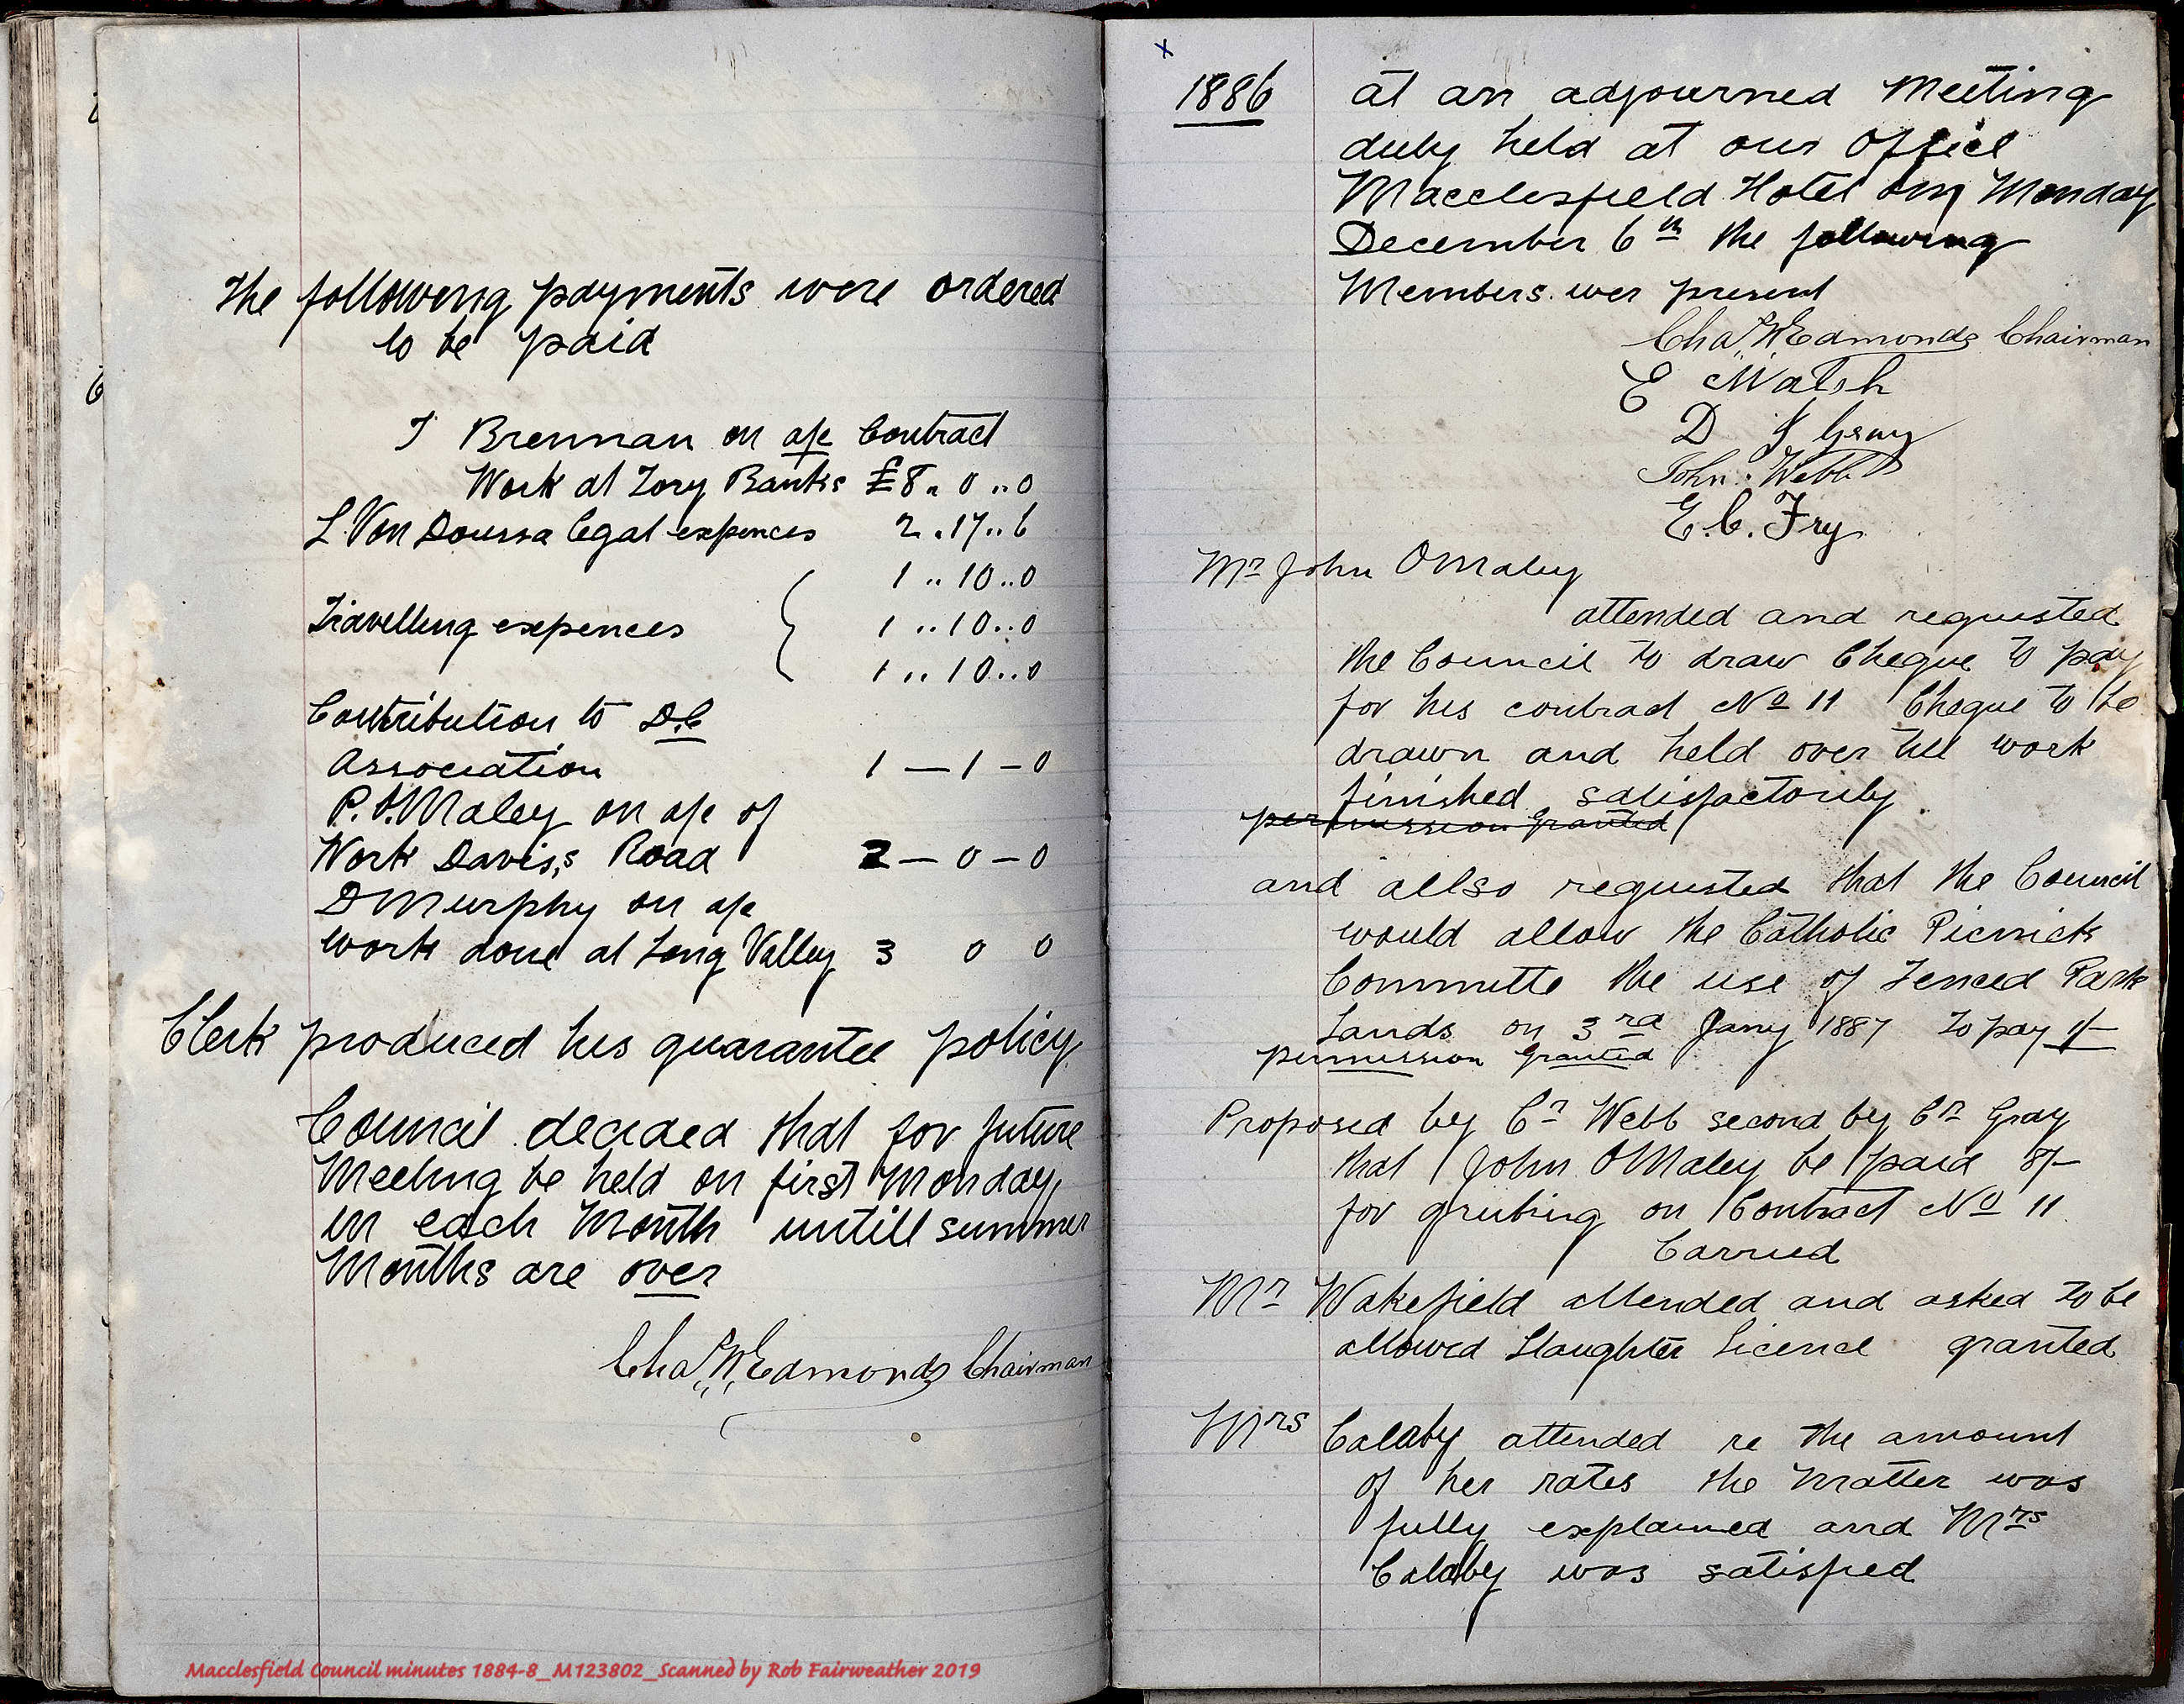 The following payments were ordered
to be paid
J Brennan on a/c Contract
Work at Tory Banks £8 .. 0 .. 0
L. Von Doussa legal expences 2 .. 17 .. 6
1 .. 10 .. 0
Travelling expences 1 .. 10 .. 0
1 .. 10 .. 0
Contribution to D.C
Association 1 — 1 — 0
P. O'Maley on a/c of
Work Davis,s Road 2 — 0 — 0
D Murphy on a/c
work done at Long Valley 3 0 0
Clerk produced his guarantee policy
Council decided that for future
Meeting be held on first Monday,
in each Month untill summer
Months are over
Chas W Edmonds Chairman
Macclesfield Council minutes 1884-8_M123802_Scanned by Rob Fairweather 2019
x
1886 at an adjourned Meeting
duly held at our Office
Macclesfield Hotel on Monday
December 6th the following
Members wer present
Chas W Edmonds Chairman
E Walsh
D J Gray
John Webb
E. C. Fry
Mr John OMaley
attended and requested
the Council to draw Cheque to pay
for his contract No 11 Cheque to be
drawn and held over till work
finished satisfactorily
permission granted
and allso requested that the Council
would allow the Catholic Picnick
Committe the use of Fenced Park
Lands on 3rd Jany 1887 to pay 1/-
permission Granted
Proposed by Cr Webb second by Cr Gray
that John OMaley be paid 8/-
for grubing on Contract No 11
Carried
Mr Wakefield attended and asked to be
allowed Slaughter Licence granted
Mrs Calaby attended re the amount
of her rates the Matter was
fully explained and Mrs
Calaby was satisfied